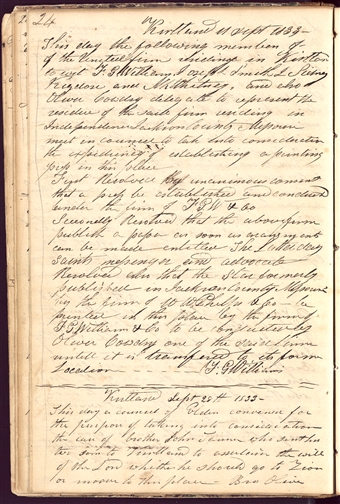 24
Kirtland 11 Sept 1833—
This day the following members of
of the United firm residing in Kirtland
to wit F. G. Williams Joseph Smith S. Sidney
Rigdon and N. K. Whitney, and also
Oliver Cowdery delegate to represent the
residue of the said firm residing in
Independence Jackson County Missouri
meet in council to take into consideration
the expediency of establishing a printing
press in this place
First Resolved by unanimous consent
that a press be established and conducted
under the firm of F. G. W & Co
Secondly Resolved that the above firm
publish a paper as soon as arrangements
can be made entitled The Latter day
Saints messenger and advocate
Resolved also that the Star formerly
published in Jackson County Missouri
by the firm of W W Phelps & Co be
printed in this place by the firm of
F G Williams & Co to be conducted by
Oliver Cowdery one of the said firm
untill it is transfered to its former
Location F. G Williams
Kirtland Sept 28th 1833—
This day a council of Elders convened for
the purpose of taking into consideration
the case of brother John Tanner who sent his
two sons to Kirtland to ascertain the will
of the Lord whether he should go to Zion
or moove to this place—